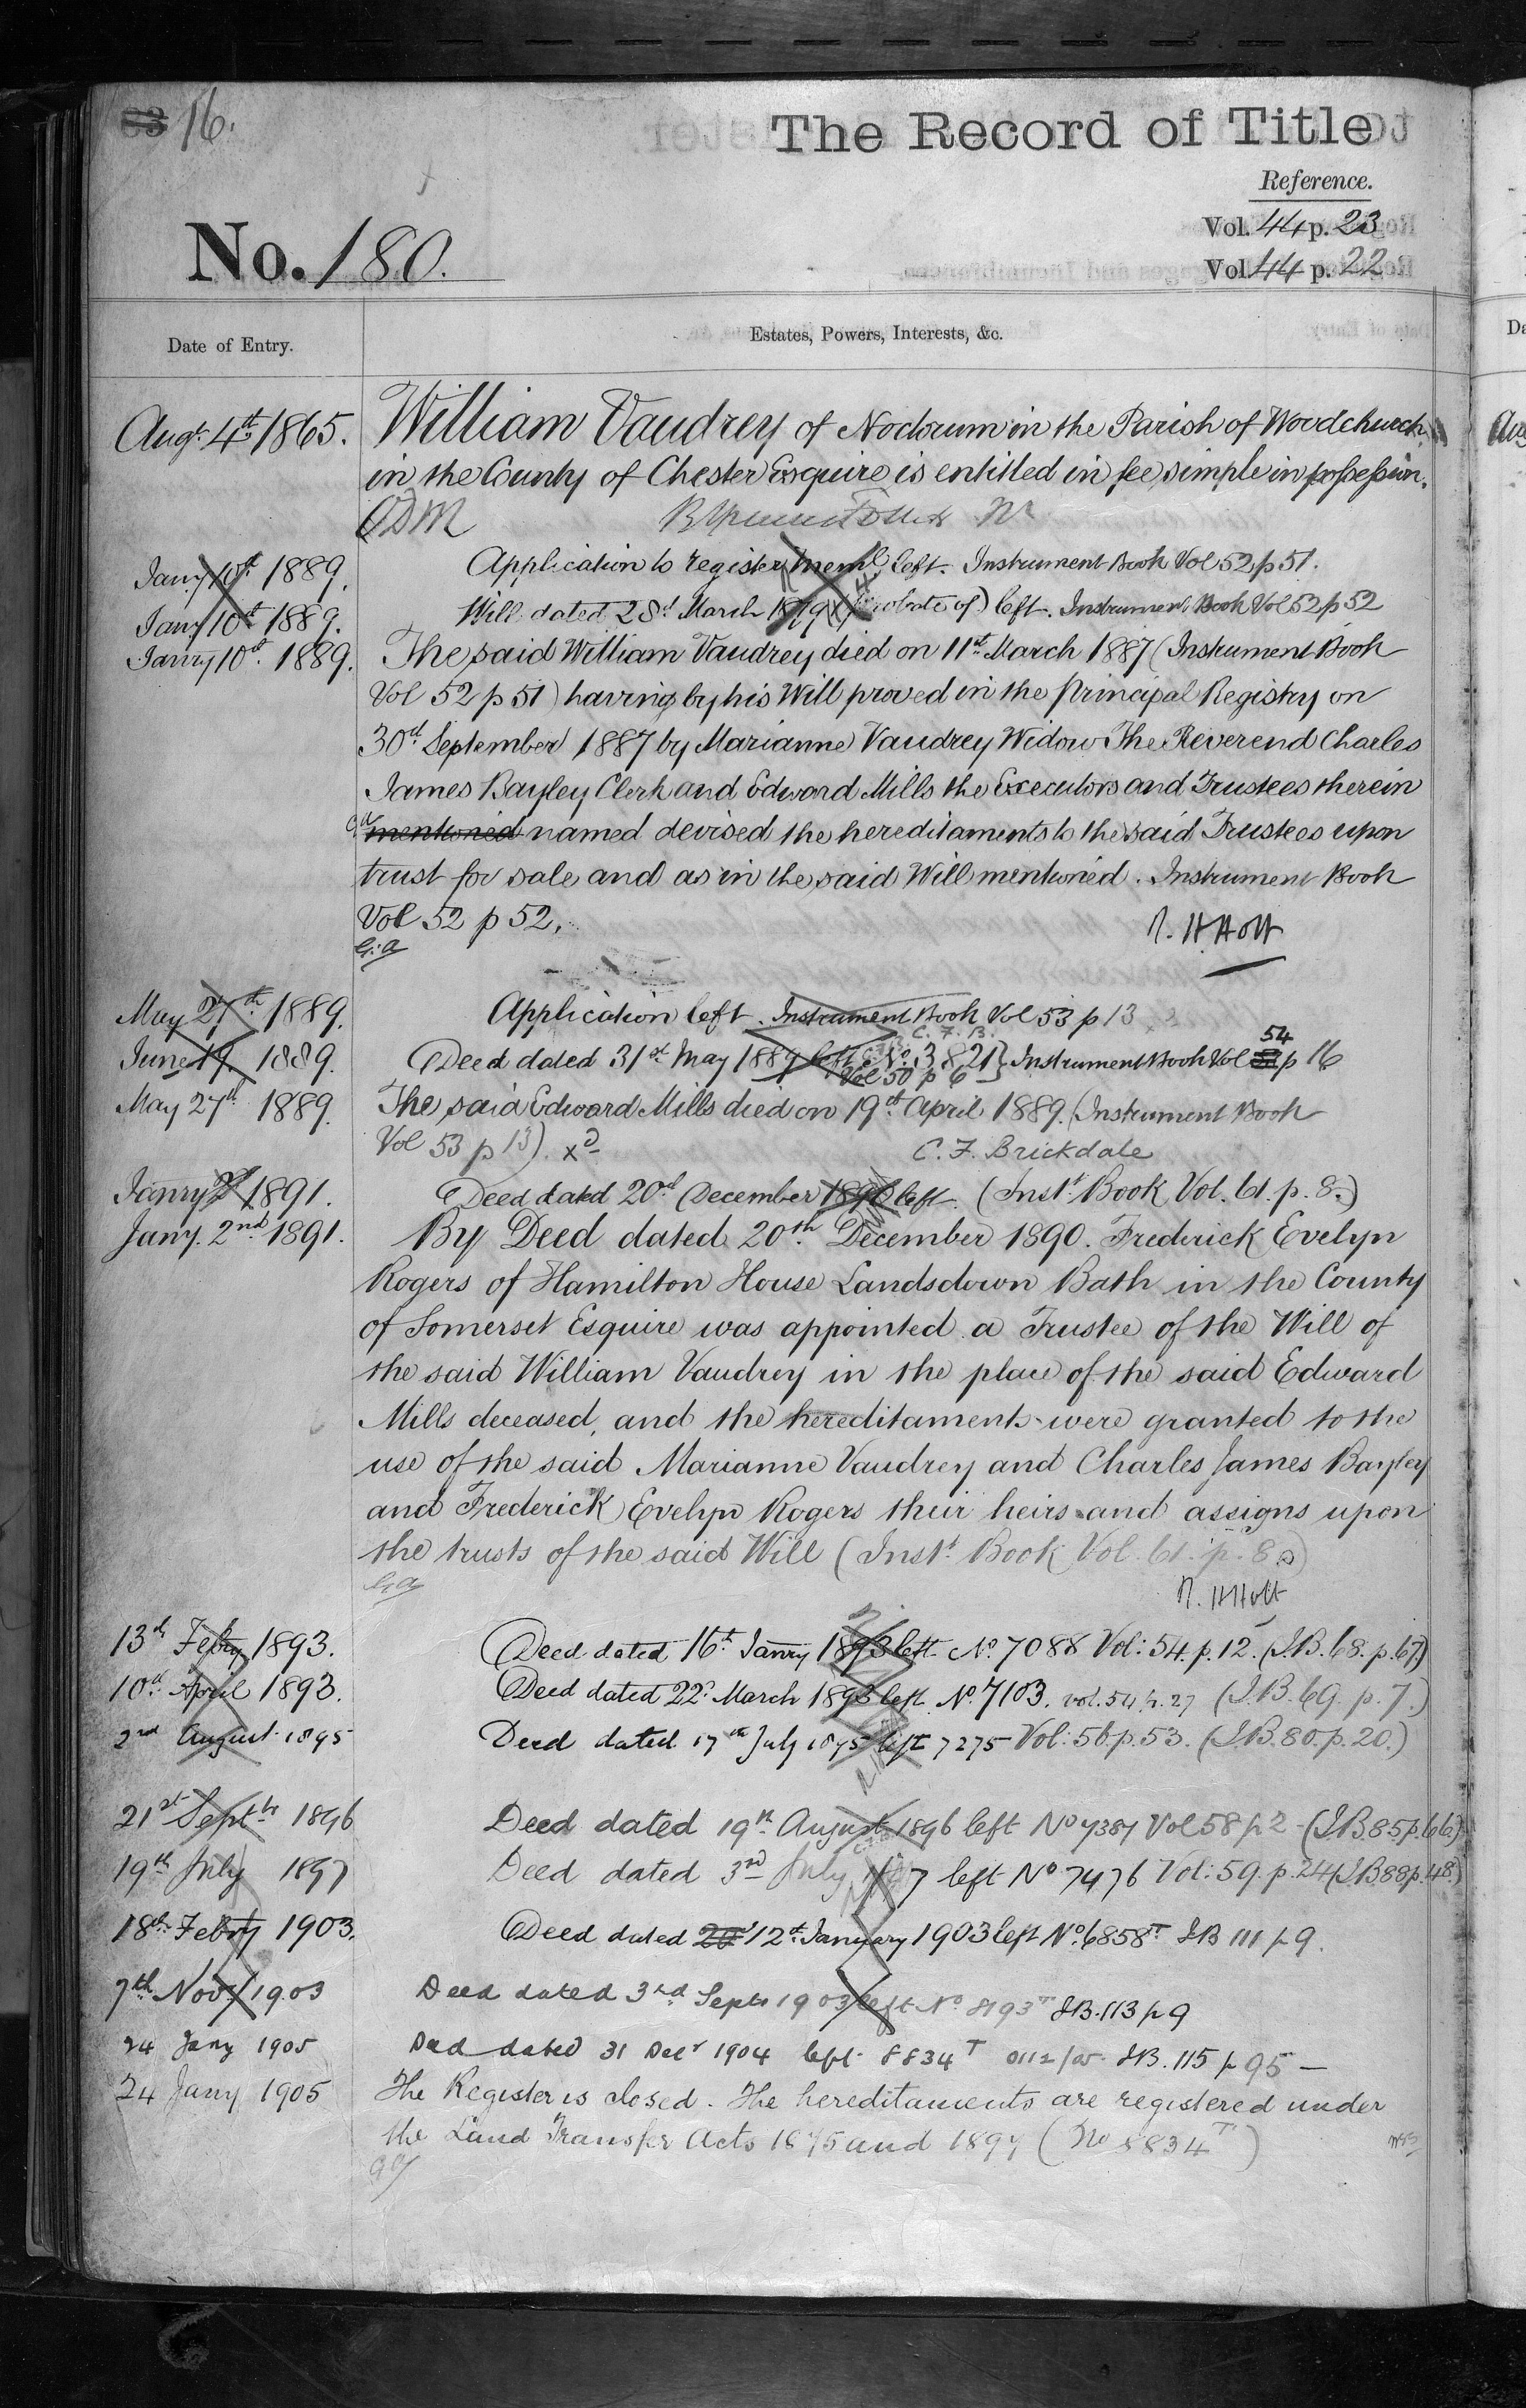 63 16.
The Record of Title
Reference.
Vol. 44 p. 23
No. 180.
Vol. 44 p. 22
Date of Entry.
Estates, Powers, Interests, &c.
Augt. 4th 1865. William Vaudrey of Noctorum in the Parish of Woodchurch
in the County of Chester Esquire is entitled in fee simple in possession.
Jany 10th 1889. Application to register left. Instrument Book Vol 52 p 51.
Jany 10th 1889. Will dated 28th March 1879 (Probate of) left. Instrument Book Vol 52 p 52
Janry 10th 1889. The said William Vaudrey died on 11th March 1887 (Instrument Book
Vol 52 p 51) having by his Will proved in the Principal Registry on
30th September 1887 by Marianne Vaudrey Widow The Reverend Charles
James Bayley Clerk and Edward Mills the Executors and Trustees therein
mentioned named devised the hereditaments to the said Trustees upon
trust for sale and as in the said Will mentioned. Instrument Book
Vol 52 p 52.
G.a R. H Holt
May 27th 1889. Application left. Instrument Book Vol 53 p 13
June 19. 1889. Deed dated 31st May 1889 left No. 3821 Vol 50 p 6 } Instrument Book Vol 54 p 16
May 27th 1889. The said Edward Mills died on 19th April 1889. (Instrument Book
Vol 53 p 13). C. F. Brickdale
Janry 2d 1891. Deed dated 20th December 1890 left. (Inst. Book Vol. 61. p. 8.)
Jany. 2nd 1891. By Deed dated 20th December 1890. Frederick Evelyn
Rogers of Hamilton House Landsdown Bath in the County
of Somerset Esquire was appointed a Trustee of the Will of
the said William Vaudrey in the place of the said Edward
Mills deceased, and the hereditaments were granted to the
use of the said Marianne Vaudrey and Charles James Bayley
and Frederick Evelyn Rogers their heirs and assigns upon
the trusts of the said Will (Inst. Book Vol. 61. p. 8.)
G.a R. H Holt
13th Febry 1893. Deed dated 16th Janry 1893 left No. 7088 Vol: 54. p. 12. (I.B. 68. p. 67)
10th April 1893. Deed dated 22d March 1893 left No. 7103. vol. 54. p. 27 (I.B. 69. p. 7.)
2nd August 1895 Deed dated 17th July 1895 left 7275 Vol: 56. p. 53. (I.B. 80. p. 20.)
21st Septr 1896 Deed dated 19th August 1896 left No 7387 Vol 58 p 2 - (I.B. 85 p. 66)
19th July 1897 Deed dated 3rd July 1897 left No 7476 Vol: 59. p. 24 (I.B. 88 p. 48.)
18th Febry 1903. Deed dated 12th January 1903 left No. 6858T IB 111 p 9.
7th Novr 1903 Deed dated 3rd Septr 1903 left No 8193T IB. 113 p 9
24 Jany 1905 Deed dated 31 Decr 1904 left 8834T 0112/05 IB. 115 p 95 —
24 Jany 1905 The Register is closed. The hereditaments are registered under
the Land Transfer Acts 1875 and 1897 (No 8834T)